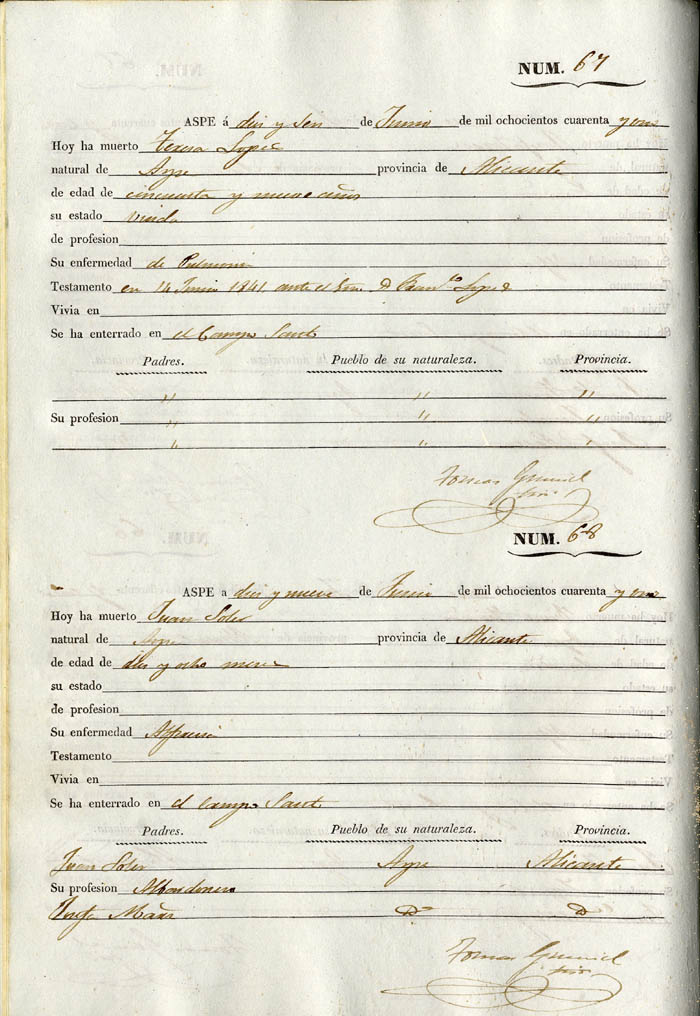 NUM. 67
ASPE á diez y seis de Junio de mil ochocientos cuarenta y uno
Hoy ha muerto Teresa Lopez
natural de Aspe provincia de Alicante
de edad de cincuenta y nueve años
su estado Viuda
de profesion
Su enfermedad de Pulmonia
Testamento en 14 Junio 1841, ante el Esno. D. Franco. Lopez
Vivia en
Se ha enterrado en el Campo Santo
Padres. Pueblo de su naturaleza. Provincia.
" " "
Su profesion " " "
" " "
Tomas
NUM. 68
ASPE a diez y nueve de Junio de mil ochocientos cuarenta y uno
Hoy ha muerto Juan Soler
natural de Aspe provincia de Alicante
de edad de diez y ocho meses
su estado
de profesion
Su enfermedad
Testamento
Vivia en
Se ha enterrado en el Campo Santo
Padres. Pueblo de su naturaleza. Provincia.
Juan Soler Aspe Alicante
Su profesion
Josefa Mañes Do Do
Tomas